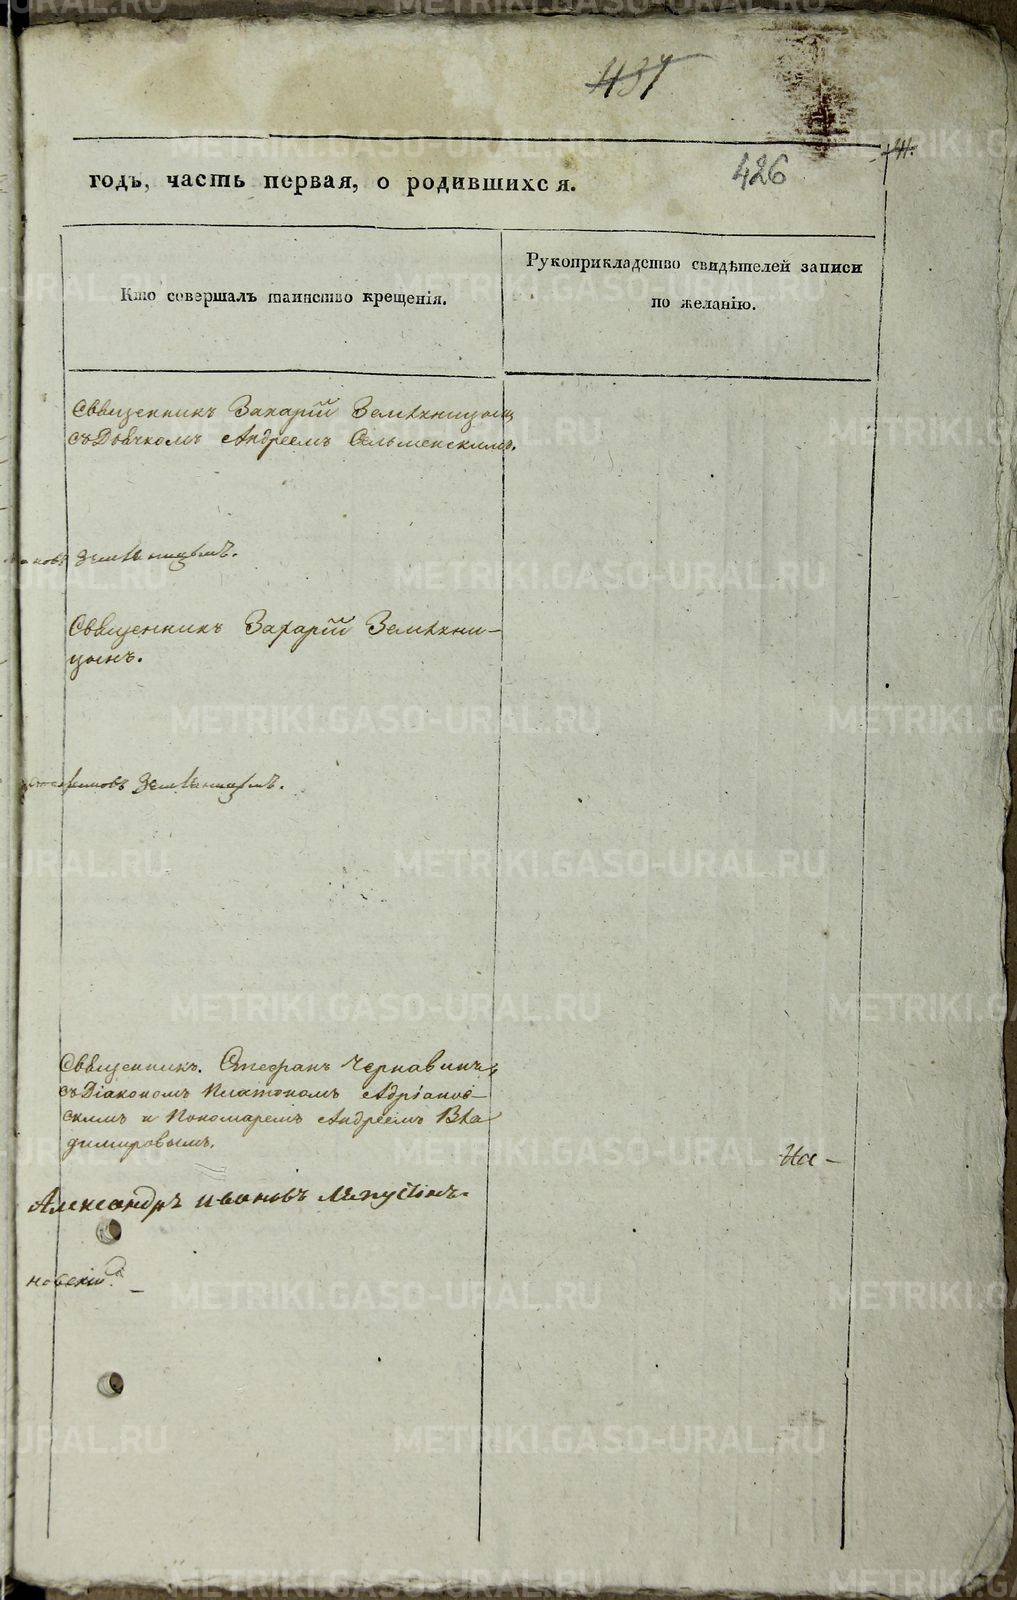 437
426
годъ, часть первая, о родившихся.
Кто совершалъ таинство крещенія.
Рукоприкладство свидѣтелей записи
по желанію.
Священникъ Захарій Земляницын
съ Дьячкомъ Андреемъ Сельменскимъ.
Земляницынъ.
Священникъ Захарій Земляни-
цынъ.
Земляницынъ.
Священникъ. Стефанъ Чернавинъ
съ Діакономъ Платономъ Адріанов-
скимъ и Пономаремъ Андреемъ Вла
димировымъ.
На-
Александръ Ивановъ Лепустинъ.
новскій.
METRIKI.GASO-URAL.RU